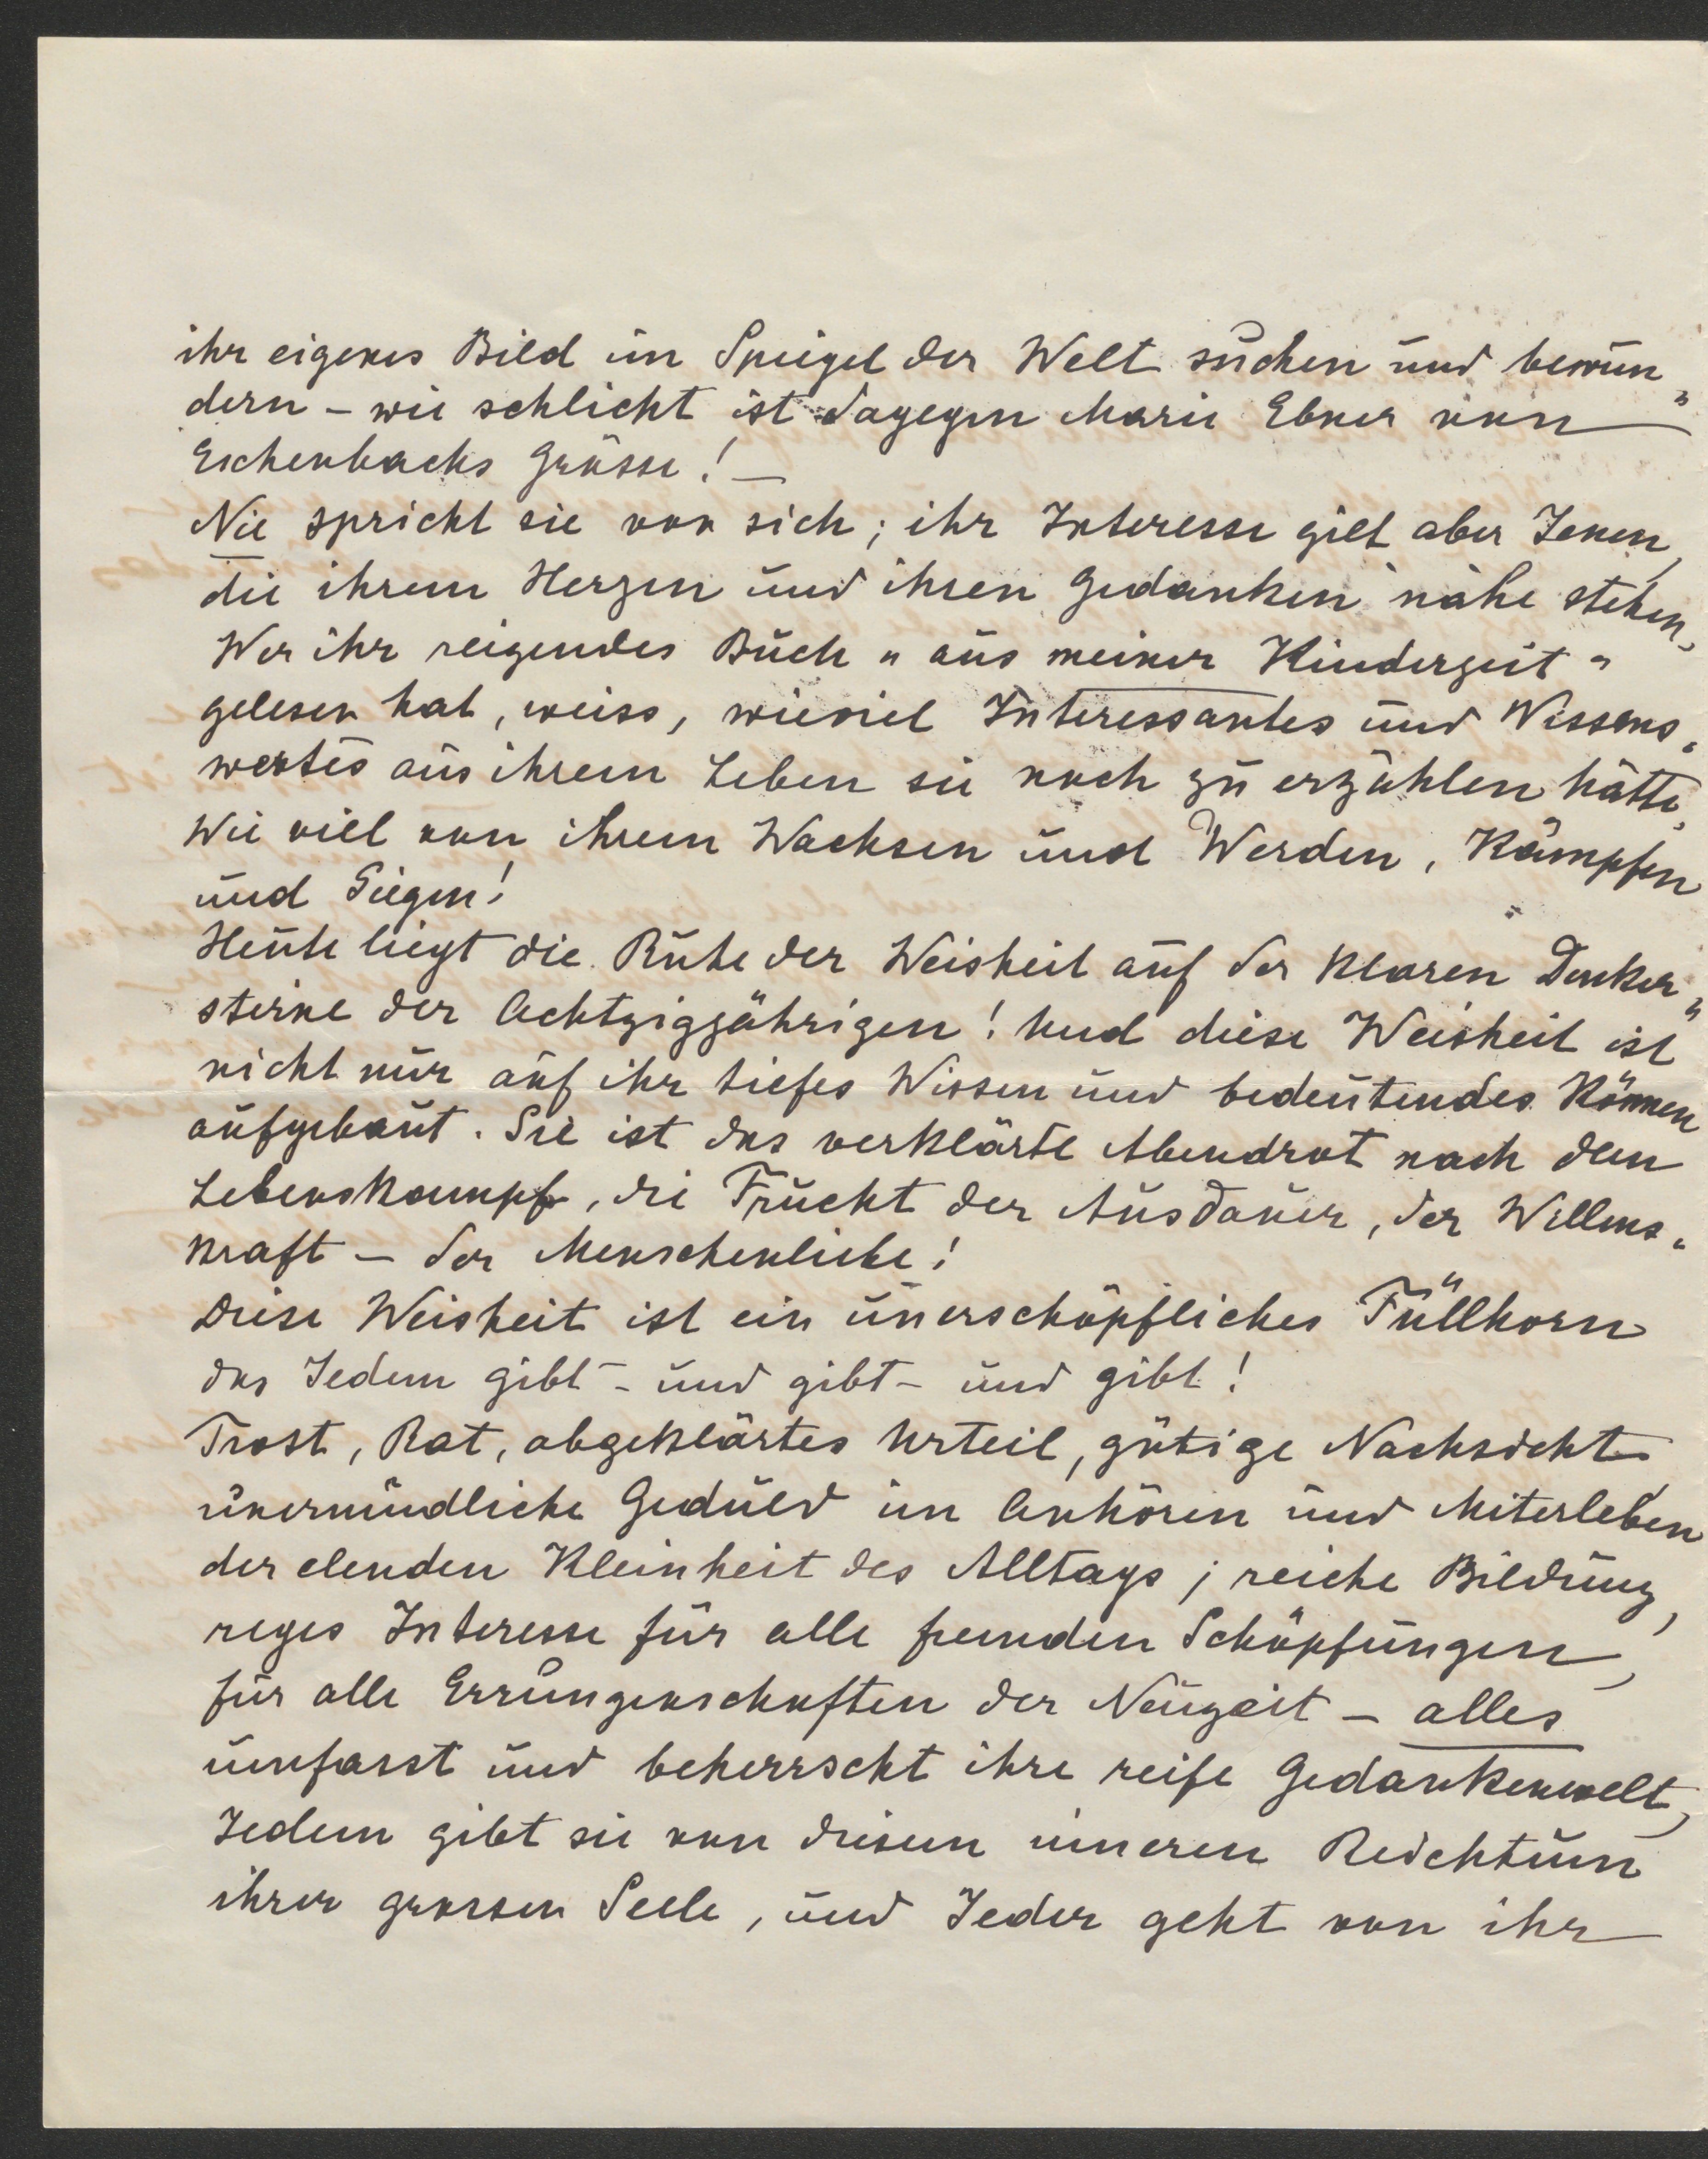 ihr eigenes Bild im Spiegel der Welt suchen und bewun„
dern – wie schlicht ist dagegen Marie Ebner von
Eschenbachs Grösse! –
Nie spricht sie von sich; ihr Interesse gilt aber Jenen,
die ihrem Herzen und ihren Gedanken nahe stehen,
Wer ihr reizendes Buch „aus meiner Kinderzeit"
gelesen hat, weiss, wieviel Interessantes und Wissens„
wertes aus ihrem Leben sie noch zu erzählen hätte,
Wie viel von ihrem Wachsen und Werden, Kämpfen
und Siegen!
Heute liegt die Ruhe der Weisheit auf der klaren Denker„
stirne der Achtzigjährigen! Und diese Weisheit ist
nicht nur auf ihr tiefes Wissen und bedeutendes Können
aufgebaut. Sie ist das verklärte Abendrot nach dem
Lebenskampf, die Frucht der Ausdauer, der Willens„
kraft – der Menschenliebe!
Diese Weisheit ist ein unerschöpfliches Füllhorn
das Jedem gibt – und gibt – und gibt!
Trost, Rat, abgeklärtes Urteil, gütige Nachsicht
unermüdliche Geduld im Anhören und Miterleben
der elenden Kleinheit des Alltags; reiche Bildung,
reges Interesse für alle fremden Schöpfungen,
für alle Errungenschaften der Neuzeit – alles
umfasst und beherrscht ihre reife Gedankenwelt,
Jedem gibt sie von diesem inneren Reichtum
ihrer grossen Seele, und Jeder geht von ihr